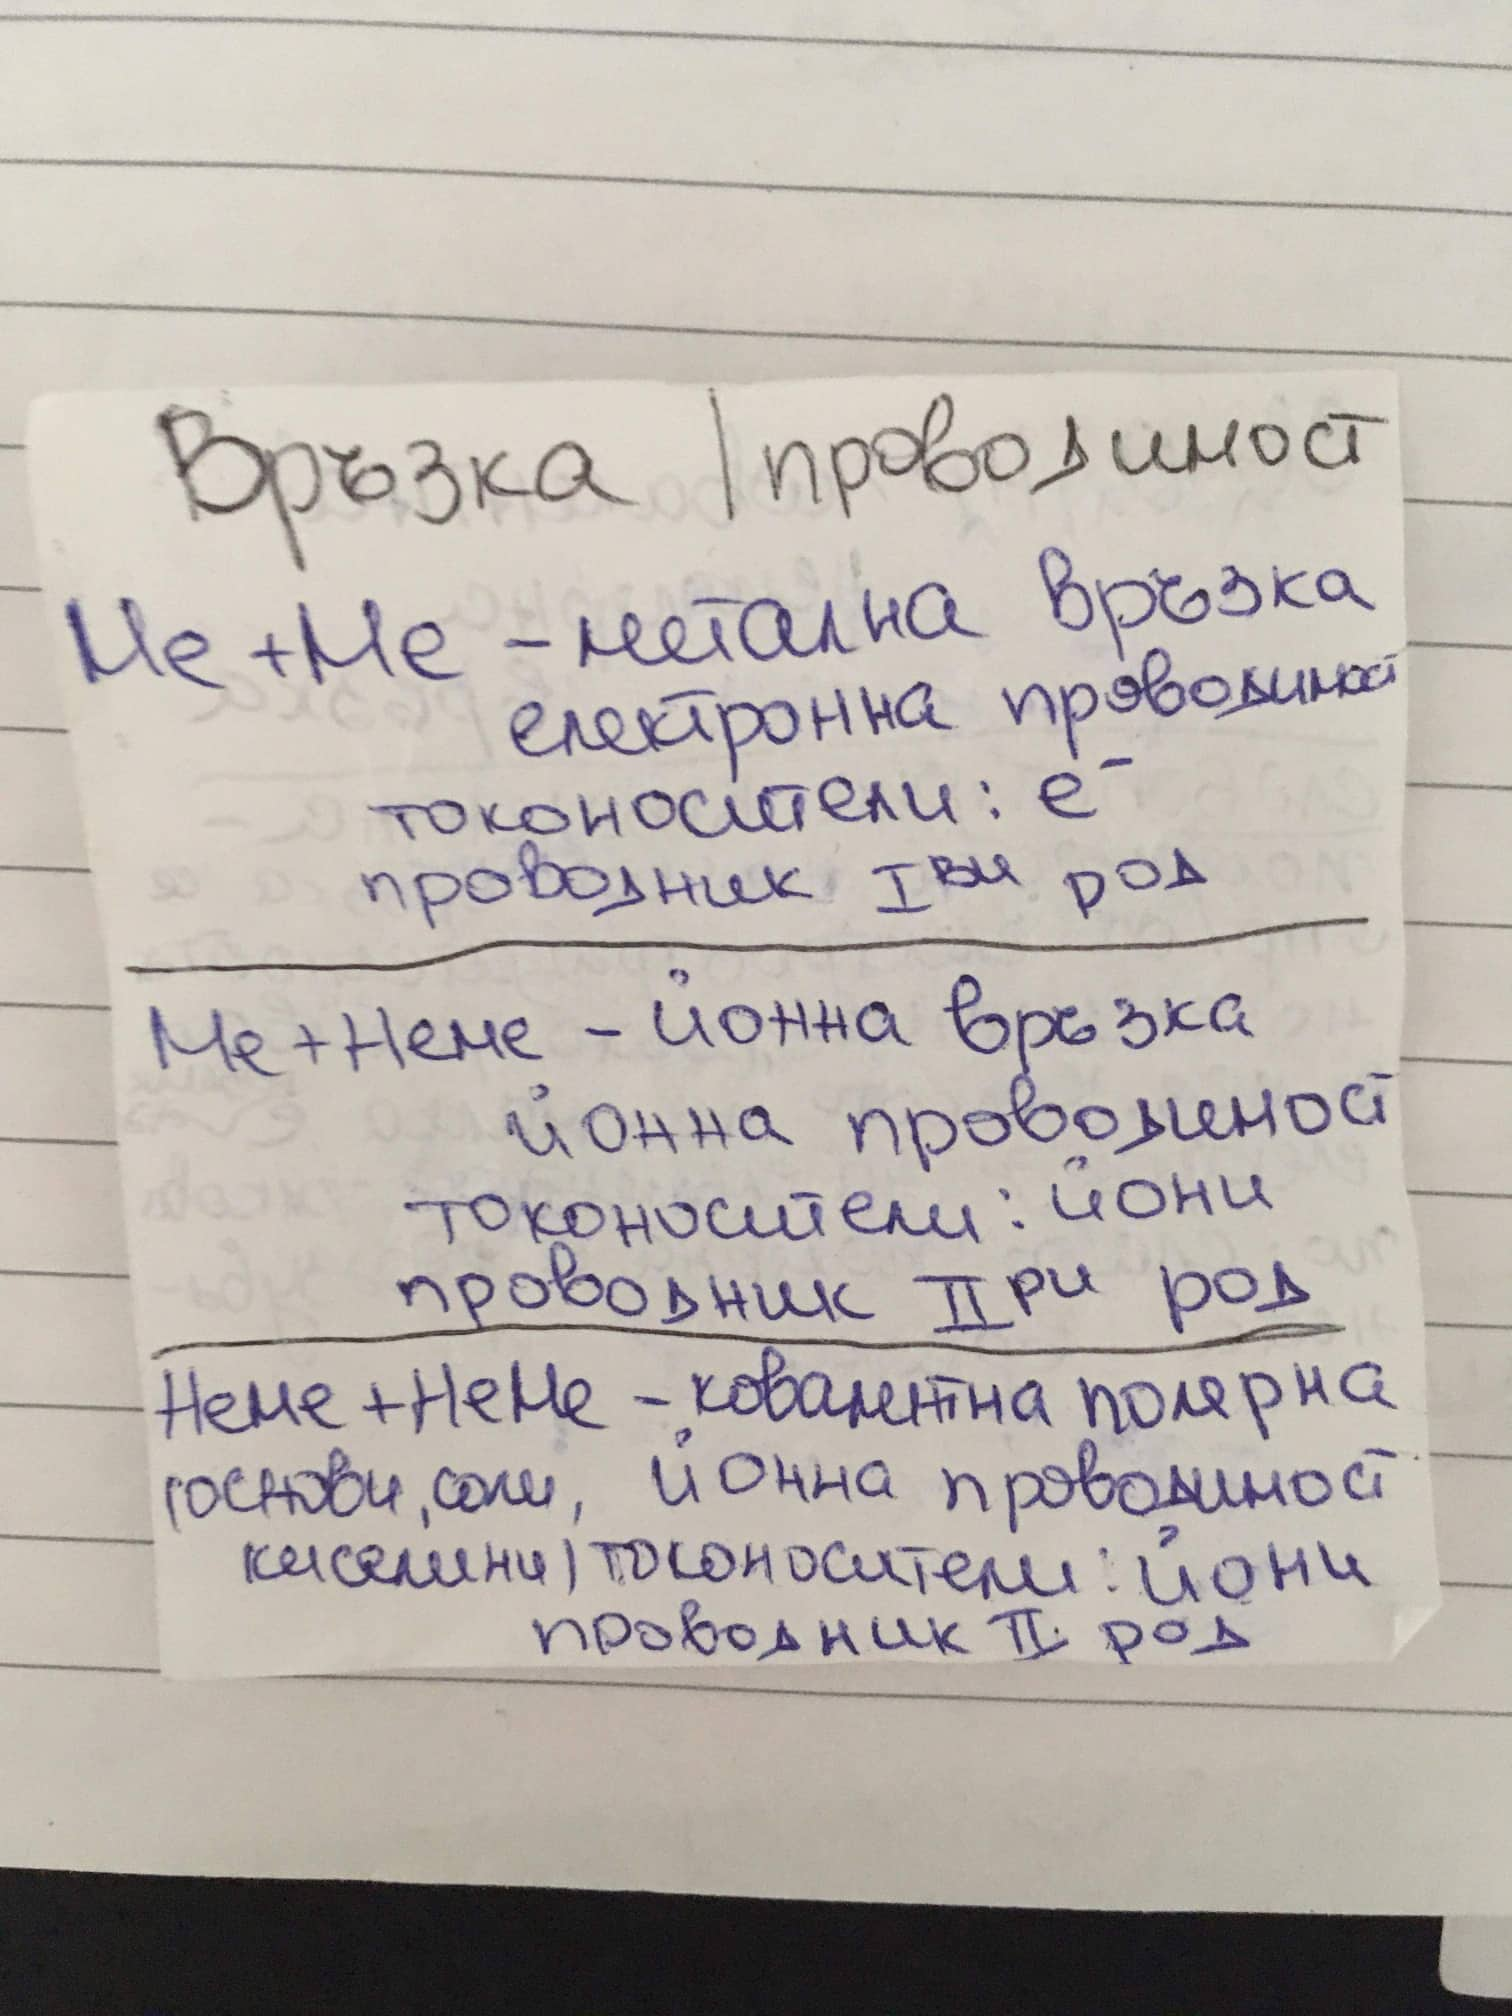 Връзка | проводимост
Ме + Ме - метална връзка
електронна проводимост
токоносители: е⁻
проводник I ви род
Ме + Неме - йонна връзка
йонна проводимост
токоносители: йони
проводник II ри род
Неме + Неме - ковалентна полярна
(основи, соли, йонна проводимост
киселини) токоносители: йони
проводник II род